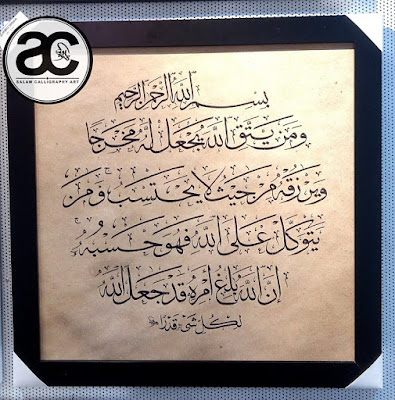 ac
SALAM CALLIGRAPHY ART
بسم الله الرحمن الرحيم
ومن يتق الله يجعل له مخرجا
ويرزقه من حيث لا يحتسب ومن
يتوكل على الله فهو حسبه
إن الله بلغ أمره قد جعل الله
لكل شيء قدرا